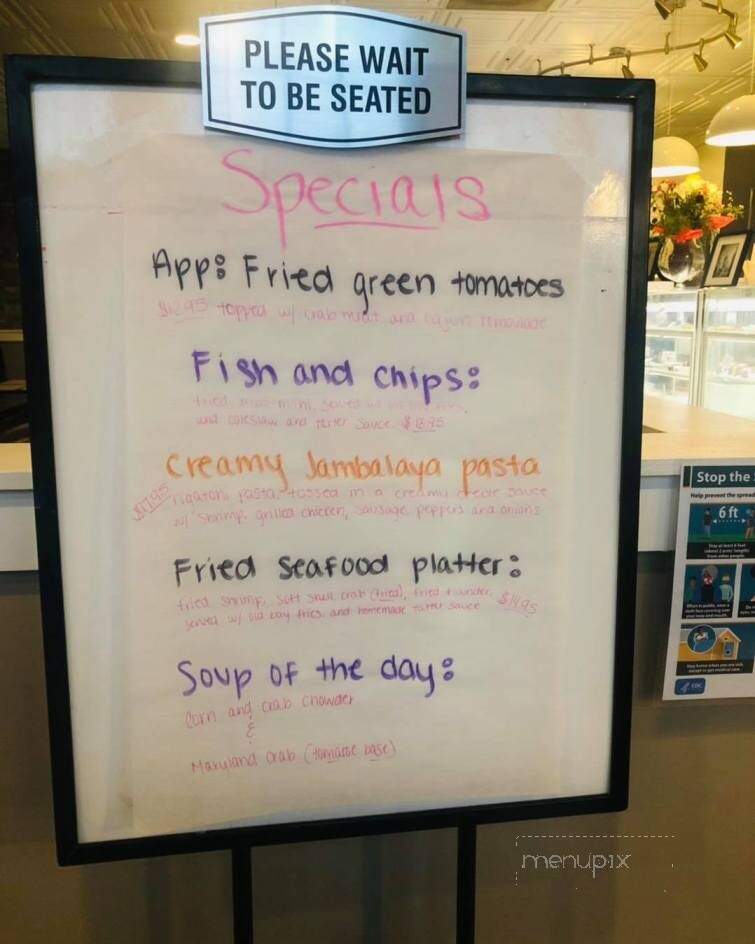 PLEASE WAIT
TO BE SEATED
Specials
App: Fried green tomatoes
$12.95 topped w/ crab meat and cajun remoulade
Fish and chips:
fried served w/
and coleslaw and tarter sauce
Creamy Jambalaya pasta
$17.95 rigatoni pasta tossed in a creamy creole sauce
w/ shrimp, grilled chicken, sausage, peppers and onions
Fried Seafood platter:
fried shrimp, soft shell crab (fried), fried flounder,
served w/ old bay fries, and homemade tarter sauce
Soup of the day:
Corn and crab chowder
&
Maryland crab (tomatoe base)
Stop the
Help prevent the spread
6 ft
CDC
menupix